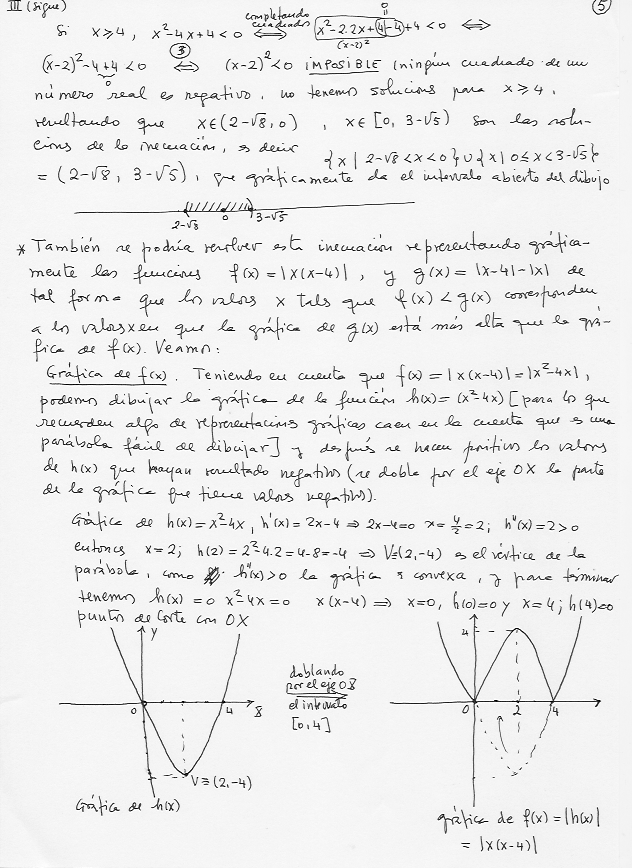 III (Sigue) ⑤
Si x≥4, x²-4x+4<0 ⟺ (completando cuadrados) x²-2·2x+4-4+4<0 ⟺
(x-2)² 0
(x-2)²-4+4<0 ③ ⟺ (x-2)²<0 IMPOSIBLE (ningún cuadrado de un
0
número real es negativo, no tenemos solucions para x≥4,
resultando que x∈(2-√8,0) , x∈[0, 3-√5) son las solu-
cions de la inecuación, es decir {x | 2-√8<x<0}∪{x | 0≤x<3-√5}
= (2-√8, 3-√5), que gráficamente da el intervalo abierto del dibujo
2-√8 0 3-√5
* También se podría resolver esta inecuación representando gráfica-
mente las funcions f(x)=|x(x-4)|, y g(x)=|x-4|-|x| de
tal forma que los valors x tals que f(x)<g(x) corresponden
a los valors x en que la gráfica de g(x) está más alta que la grá-
fica de f(x). Veamos:
Gráfica de f(x). Teniendo en cuenta que f(x)=|x(x-4)|=|x²-4x|,
podemos dibujar la gráfica de la función h(x)=(x²-4x) [para los que
recuerden algo de representacions gráficas caen en la cuenta que es una
parábola fácil de dibujar] y después se hacen positivos los valores
de h(x) que hayan resultado negativos (se dobla por el eje OX la parte
de la gráfica que tiene valors negativos).
Gráfica de h(x)=x²-4x, h'(x)=2x-4 ⇒ 2x-4=0 x=4/2=2; h''(x)=2>0
entoncs x=2; h(2)=2²-4·2=4-8=-4 ⇒ V≡(2,-4) es el vértice de la
parábola, como h''(x)>0 la gráfica es convexa, y para terminar
tenemos h(x)=0 x²-4x=0 x(x-4) ⇒ x=0, h(0)=0 y x=4; h(4)=0
puntos de corte con OX
y
0 4 X
V≡(2,-4)
Gráfica de h(x)
doblando
por el eje OX
el intervalo
[0,4]
4
0 2 4
gráfica de f(x)=|h(x)|
= |x(x-4)|